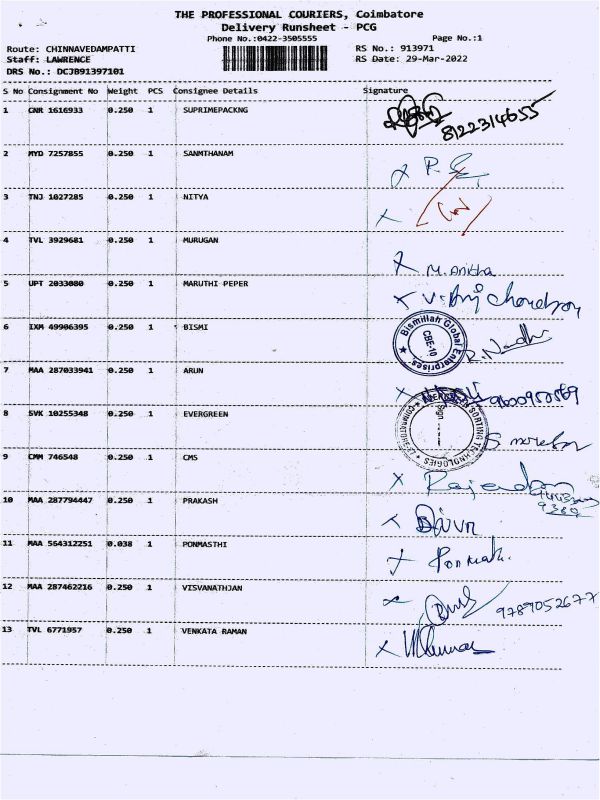 THE PROFESSIONAL COURIERS, Coimbatore
Delivery Runsheet - PCG
Phone No.:0422-3505555 Page No.:1
Route: CHINNAVEDAMPATTI RS No.: 913971
Staff: LAWRENCE RS Date: 29-Mar-2022
DRS No.: DCJB91397101
S No Consignment No Weight PCS Consignee Details Signature
1 GNR 1616933 0.250 1 SUPRIMEPACKNG 8122314655
2 MYD 7257855 0.250 1 SANMTHANAM
3 TNJ 1027285 0.250 1 NITYA
4 TVL 3929681 0.250 1 MURUGAN M. Anitha
5 UPT 2033080 0.250 1 MARUTHI PEPER
6 IXM 49906395 0.250 1 BISMI Bismillah Global Enterprises. CBE-10
7 MAA 287033941 0.250 1 ARUN
8 SVK 10255348 0.250 1 EVERGREEN SORTING TECHNOLOGIES Sign
9 CMM 746548 0.250 1 CMS Rajendran
10 MAA 287794447 0.250 1 PRAKASH
11 MAA 564312251 0.038 1 PONMASTHI
12 MAA 287462216 0.250 1 VISVANATHJAN 9789052677
13 TVL 6771957 0.250 1 VENKATA RAMAN